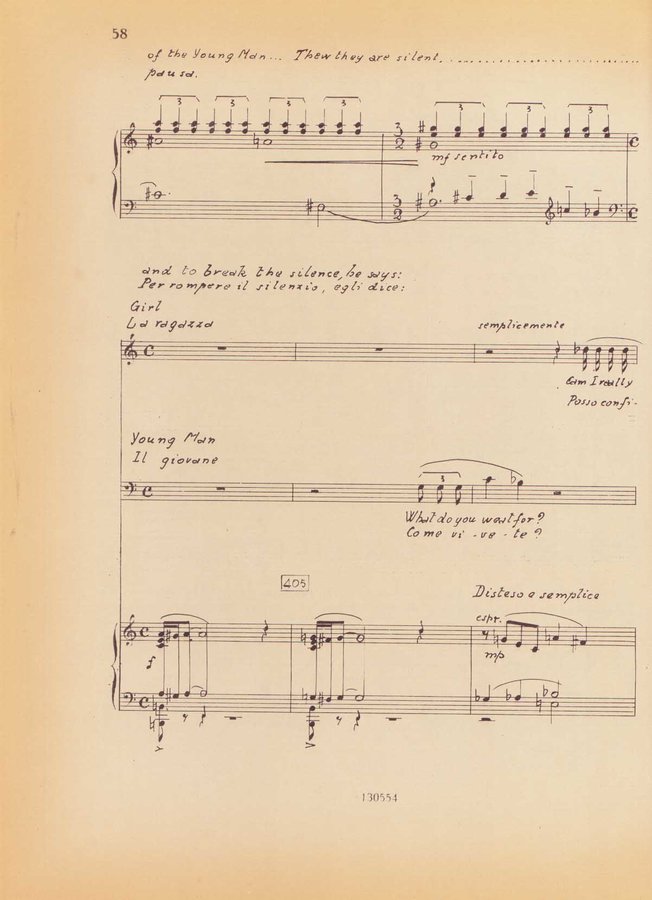 58
of the Young Man... Thew they are silent
pausa.
3 3 3 3 3 3 3
3
2
mf sentito
3
2
and to break the silence, he says:
Per rompere il silenzio, egli dice:
Girl
La ragazza
semplicemente
Cam I really
Posso confi-
Young Man
Il giovane
3
What do you want for?
Come vi - ve - te?
405
Disteso e semplice
espr.
f
mp
130554